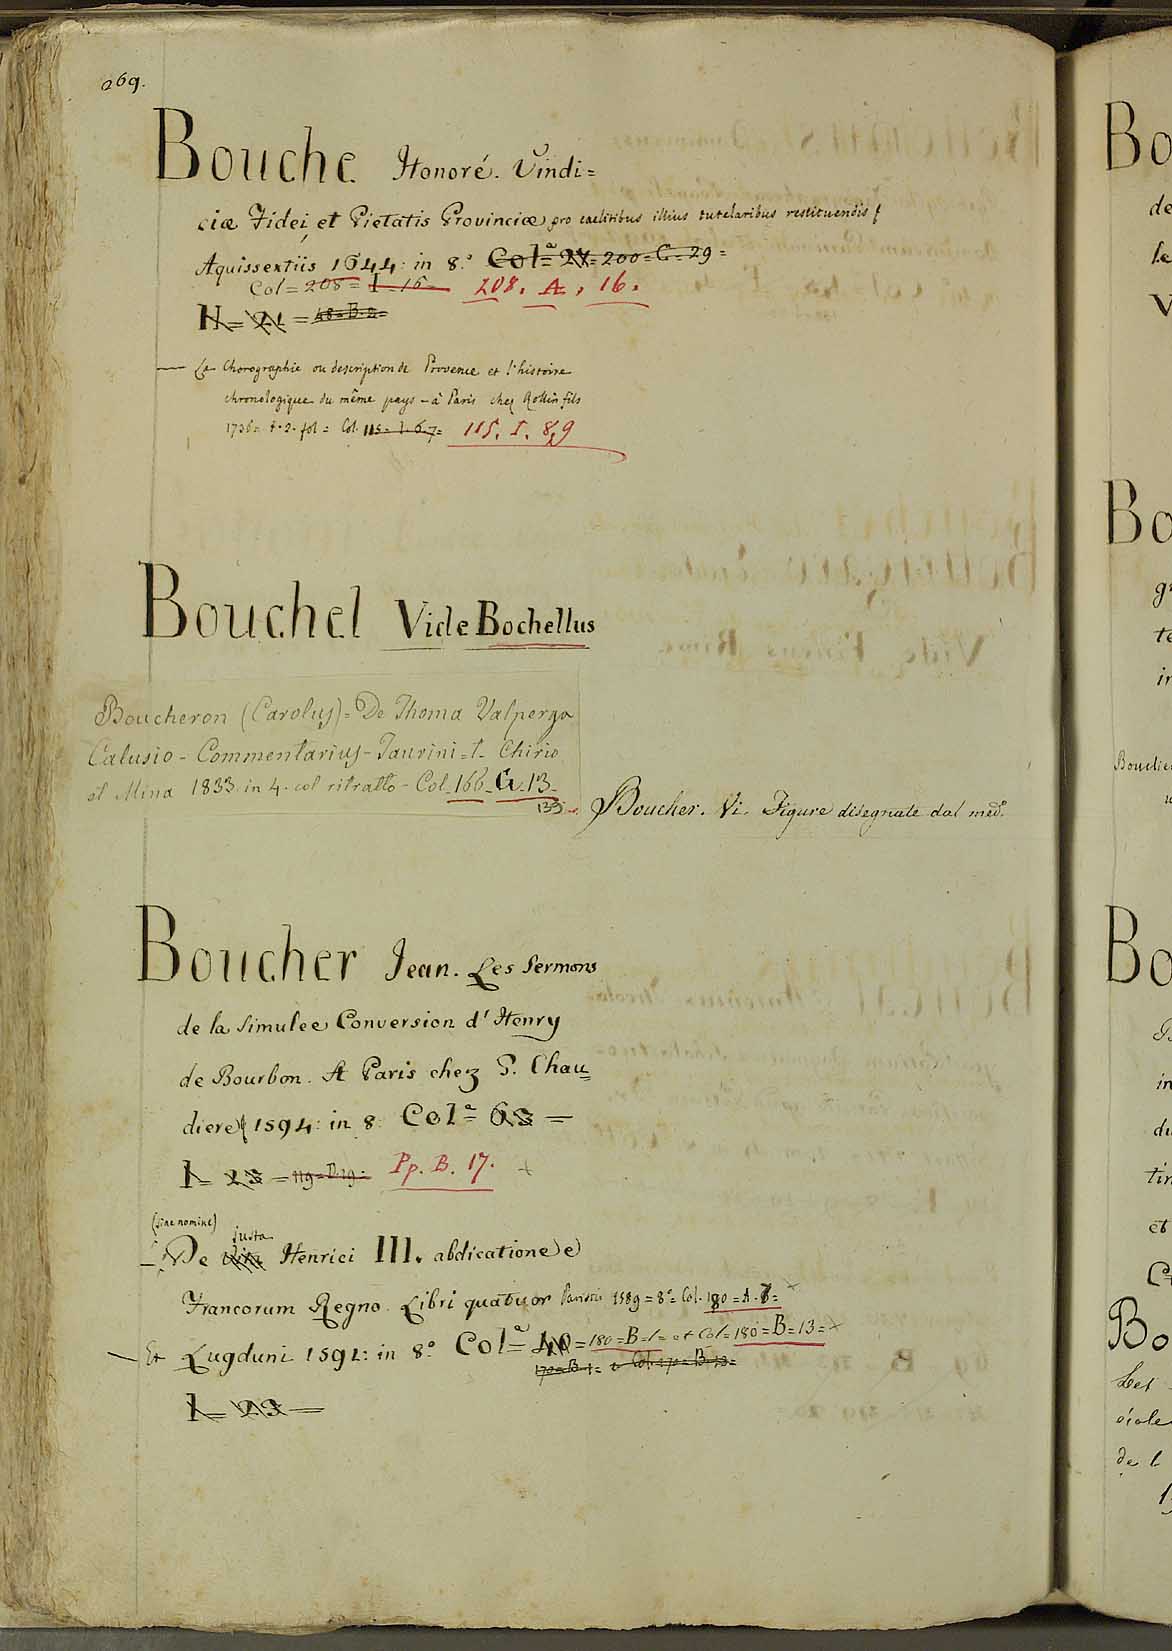 269.
Bouche Honoré. Vindi=
ciæ Fidei, et Pietatis Provinciæ pro cælitibus illius tutelaribus restituendis
Aquissextiis 1644: in 8.° Col.ª 27=200=C=29=
Col= 208= I=16= 208. A, 16.
N= 21 = 48=B=2=
— La Chorographie ou description de Provence et l'histoire
chronologique du même pays - à Paris chez Rollin fils
1736= t. 2. fol = Col. 115= I. 6.7= 115. I. 8,9
Bouchel Vide Bochellus
Boucheron (Carolus)= De Thoma Valperga
Calusio - Commentarius - Taurini = t- Chirio
et Mina 1833. in 4. col ritratto - Col. 166. G. 13.
133
Boucher. Vi. Figure disegnate dal med.º
Boucher Jean. Les Sermons
de la simulee Conversion d'Henry
de Bourbon. A Paris chez G. Chau=
diere 1594: in 8. Col.ª 63 —
I= 23 = 119=D.19= Pp. B. 17.
(sine nomine)
justa
— De Henrici III. abdicatione e
Francorum Regno. Libri quatuor Parisiis 1589=8°= Col. 180=A.7=
— Et Lugduni 1591: in 8.° Col.ª 40 = 180=B=1= et Col= 180=B=13=
170=B.1= e Col. 170=B.13=
I= 23 —
Bo
de
le
V
Bo
te
in
Bo
in
du
et
Bo
Les
de l